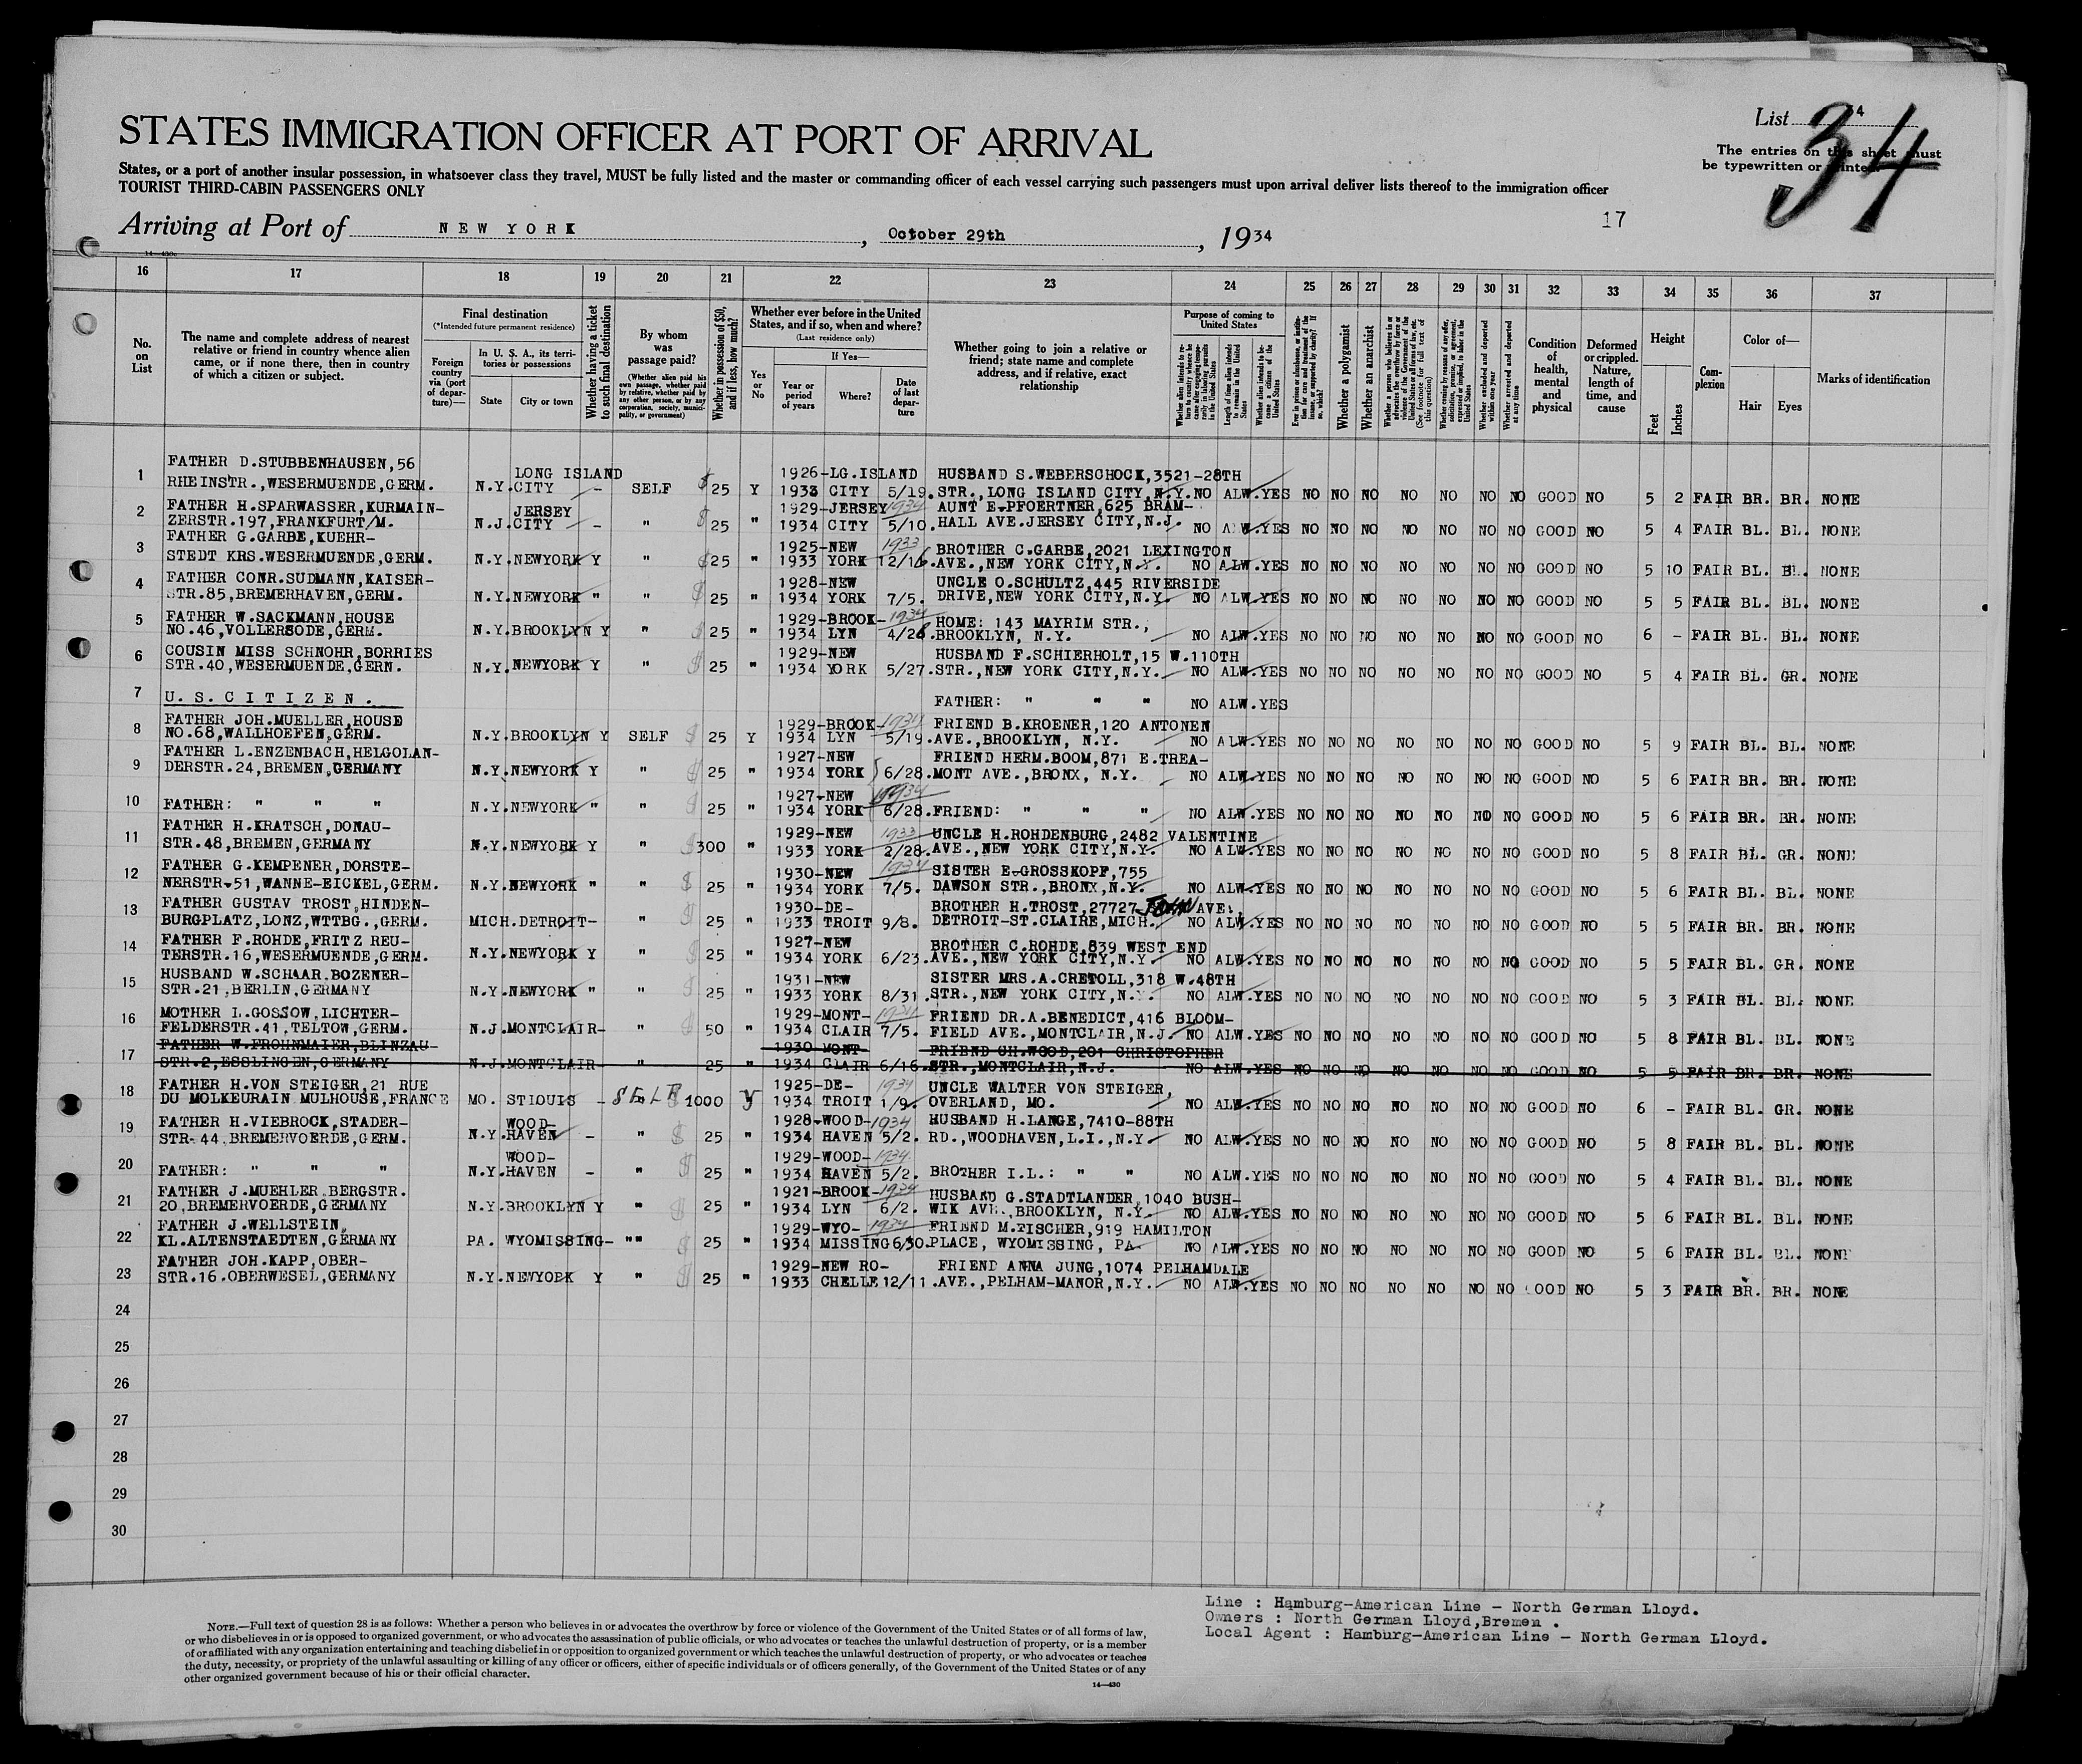 List 34
34
STATES IMMIGRATION OFFICER AT PORT OF ARRIVAL
The entries on this sheet must
be typewritten or printed.
States, or a port of another insular possession, in whatsoever class they travel, MUST be fully listed and the master or commanding officer of each vessel carrying such passengers must upon arrival deliver lists thereof to the immigration officer
TOURIST THIRD-CABIN PASSENGERS ONLY
Arriving at Port of NEW YORK, October 29th, 1934
17
14—430c
16 17 18 19 20 21 22 23 24 25 26 27 28 29 30 31 32 33 34 35 36 37
No. on List
The name and complete address of nearest relative or friend in country whence alien came, or if none there, then in country of which a citizen or subject.
Final destination
(*Intended future permanent residence)
Foreign country via (port of departure)—
In U. S. A., its territories or possessions
State
City or town
Whether having a ticket to such final destination
By whom was passage paid?
(Whether alien paid his own passage, whether paid by relative, whether paid by any other person, or by any corporation, society, municipality, or government)
Whether in possession of $50, and if less, how much?
Whether ever before in the United States, and if so, when and where?
(Last residence only)
Yes or No
If Yes—
Year or period of years
Where?
Date of last departure
Whether going to join a relative or friend; state name and complete address, and if relative, exact relationship
Purpose of coming to United States
Length of time alien intends to remain in the United States
Whether alien intends to become a citizen of the United States
Whether a polygamist
Whether an anarchist
(See footnote for full text of this question)
Whether excluded and deported within one year
Whether arrested and deported at any time
Condition of health, mental and physical
Deformed or crippled. Nature, length of time, and cause
Height
Feet
Inches
Complexion
Color of—
Hair
Eyes
Marks of identification
1 FATHER D.STUBBENHAUSEN,56 LONG ISLAND 1926-LG.ISLAND HUSBAND S.WEBERSCHOCK,3521-28TH
RHEINSTR.,WESERMUENDE,GERM. N.Y.CITY - SELF $25 Y 1933 CITY 5/19. STR.,LONG ISLAND CITY,N.Y. NO ALW.YES NO NO NO NO NO NO NO GOOD NO 5 2 FAIR BR. BR. NONE
2 FATHER H.SPARWASSER,KURMAIN- JERSEY 1929-JERSEY 1934 AUNT E.PFOERTNER,625 BRAM-
ZERSTR.197,FRANKFURT/M. N.J.CITY - " $25 " 1934 CITY 5/10. HALL AVE.JERSEY CITY,N.J. NO ALW.YES NO NO NO NO NO NO NO GOOD NO 5 4 FAIR BL. BL. NONE
3 FATHER G.GARBE,KUEHR- 1925-NEW 1933 BROTHER C.GARBE,2021 LEXINGTON
STEDT KRS.WESERMUENDE,GERM. N.Y.NEWYORK Y " $25 " 1933 YORK 12/16. AVE.,NEW YORK CITY,N.Y. NO ALW.YES NO NO NO NO NO NO NO GOOD NO 5 10 FAIR BL. BL. NONE
4 FATHER CONR.SUDMANN,KAISER- 1928-NEW UNCLE O.SCHULTZ,445 RIVERSIDE
STR.85,BREMERHAVEN,GERM. N.Y.NEWYORK " " $25 " 1934 YORK 7/5. DRIVE,NEW YORK CITY,N.Y. NO ALW.YES NO NO NO NO NO NO NO GOOD NO 5 5 FAIR BL. BL. NONE
5 FATHER W.SACKMANN,HOUSE 1929-BROOK- 1934 HOME: 143 MAYRIM STR.,
NO.46,VOLLERSODE,GERM. N.Y.BROOKLYN Y " $25 " 1934 LYN 4/26. BROOKLYN, N.Y. NO ALW.YES NO NO NO NO NO NO NO GOOD NO 6 - FAIR BL. BL. NONE
6 COUSIN MISS SCHNOHR,BORRIES 1929-NEW HUSBAND F.SCHIERHOLT,15 W.110TH
STR.40,WESERMUENDE,GERN. N.Y.NEWYORK Y " $25 " 1934 YORK 5/27. STR.,NEW YORK CITY,N.Y. NO ALW.YES NO NO NO NO NO NO NO GOOD NO 5 4 FAIR BL. GR. NONE
7 U.S.CITIZEN. FATHER: " " " NO ALW.YES
8 FATHER JOH.MUELLER,HOUSE 1929-BROOK- 1934 FRIEND B.KROENER,120 ANTONEN
NO.68,WALLHOEFEN,GERM. N.Y.BROOKLYN Y SELF $25 Y 1934 LYN 5/19. AVE.,BROOKLYN, N.Y. NO ALW.YES NO NO NO NO NO NO NO GOOD NO 5 9 FAIR BL. BL. NONE
9 FATHER L.ENZENBACH,HELGOLAN- 1927-NEW FRIEND HERM.BOOM,871 E.TREA-
DERSTR.24,BREMEN,GERMANY N.Y.NEWYORK Y " $25 " 1934 YORK 6/28. MONT AVE.,BRONX, N.Y. NO ALW.YES NO NO NO NO NO NO NO GOOD NO 5 6 FAIR BR. BR. NONE
10 1927-NEW 1934
FATHER: " " " N.Y.NEWYORK " " $25 " 1934 YORK 6/28. FRIEND: " " " NO ALW.YES NO NO NO NO NO NO NO GOOD NO 5 6 FAIR BR. BR. NONE
11 FATHER H.KRATSCH,DONAU- 1929-NEW 1933 UNCLE H.ROHDENBURG,2482 VALENTINE
STR.48,BREMEN,GERMANY N.Y.NEWYORK Y " $300 " 1933 YORK 2/28. AVE.,NEW YORK CITY,N.Y. NO ALW.YES NO NO NO NO NO NO NO GOOD NO 5 8 FAIR BL. GR. NONE
12 FATHER G.KEMPENER,DORSTE- 1930-NEW 1934 SISTER E.GROSSKOPF,755
NERSTR.51,WANNE-EICKEL,GERM. N.Y.NEWYORK " " $25 " 1934 YORK 7/5. DAWSON STR.,BRONX,N.Y. NO ALW.YES NO NO NO NO NO NO NO GOOD NO 5 6 FAIR BL. BL. NONE
13 FATHER GUSTAV TROST,HINDEN- 1930-DE- BROTHER H.TROST,27727 JOHN AVE.,
BURGPLATZ,LONZ,WTTBG.,GERM. MICH.DETROIT- " $25 " 1933 TROIT 9/8. DETROIT-ST.CLAIRE,MICH. NO ALW.YES NO NO NO NO NO NO NO GOOD NO 5 5 FAIR BR. BR. NONE
14 FATHER F.ROHDE,FRITZ REU- 1927-NEW BROTHER C.ROHDE,839 WEST END
TERSTR.16,WESERMUENDE,GERM. N.Y.NEWYORK Y " $25 " 1934 YORK 6/23. AVE.,NEW YORK CITY,N.Y. NO ALW.YES NO NO NO NO NO NO NO GOOD NO 5 5 FAIR BL. GR. NONE
15 HUSBAND W.SCHAAR,BOZENER- 1931-NEW SISTER MRS.A.CRETOLL,318 W.48TH
STR.21,BERLIN,GERMANY N.Y.NEWYORK " " $25 " 1933 YORK 8/31. STR.,NEW YORK CITY,N.Y. NO ALW.YES NO NO NO NO NO NO NO GOOD NO 5 3 FAIR BL. BL. NONE
16 MOTHER L.GOSSOW,LICHTER- 1929-MONT- 1934 FRIEND DR.A.BENEDICT,416 BLOOM-
FELDERSTR.41,TELTOW,GERM. N.J.MONTCLAIR- " $50 " 1934 CLAIR 7/5. FIELD AVE.,MONTCLAIR,N.J. NO ALW.YES NO NO NO NO NO NO NO GOOD NO 5 8 FAIR BL. BL. NONE
17 FATHER W.FROHNMAIER,BLINZAU- 1930-MONT- FRIEND CH.WOOD,201 CHRISTOPHER
STR.2,ESSLINGEN,GERMANY N.J.MONTCLAIR- " 25 " 1934 CLAIR 6/16. STR.,MONTCLAIR,N.J. NO ALW.YES NO NO NO NO NO NO NO GOOD NO 5 5 FAIR BR. BR. NONE
18 FATHER H.VON STEIGER,21 RUE 1925-DE- 1934 UNCLE WALTER VON STEIGER,
DU MOLKEURAIN MULHOUSE,FRANCE MO. STLOUIS - SELF $1000 y 1934 TROIT 1/9. OVERLAND, MO. NO ALW.YES NO NO NO NO NO NO NO GOOD NO 6 - FAIR BL. GR. NONE
19 FATHER H.VIEBROCK,STADER- WOOD- 1928-WOOD- 1934 HUSBAND H.LANGE,7410-88TH
STR.44,BREMERVOERDE,GERM. N.Y.HAVEN - " $25 " 1934 HAVEN 5/2. RD.,WOODHAVEN,L.I.,N.Y. NO ALW.YES NO NO NO NO NO NO NO GOOD NO 5 8 FAIR BL. BL. NONE
20 WOOD- 1929-WOOD- 1934
FATHER: " " " N.Y.HAVEN - " $25 " 1934 HAVEN 5/2. BROTHER I.L.: " " NO ALW.YES NO NO NO NO NO NO NO GOOD NO 5 4 FAIR BL. BL. NONE
21 FATHER J.MUEHLER,BERGSTR. 1921-BROOK- 1934 HUSBAND G.STADTLANDER,1040 BUSH-
20,BREMERVOERDE,GERMANY N.Y.BROOKLYN Y " $25 " 1934 LYN 6/2. WIK AVE.,BROOKLYN, N.Y. NO ALW.YES NO NO NO NO NO NO NO GOOD NO 5 6 FAIR BL. BL. NONE
22 FATHER J.WELLSTEIN, 1929-WYO- 1934 FRIEND M.FISCHER,919 HAMILTON
KL.ALTENSTAEDTEN,GERMANY PA. WYOMISSING- "" $25 " 1934 MISSING 6/30. PLACE, WYOMISSING, PA. NO ALW.YES NO NO NO NO NO NO NO GOOD NO 5 6 FAIR BL. BL. NONE
23 FATHER JOH.KAPP,OBER- 1929-NEW RO- FRIEND ANNA JUNG,1074 PELHAMDALE
STR.16.OBERWESEL,GERMANY N.Y.NEWYORK Y " $25 " 1933 CHELLE 12/11. AVE.,PELHAM-MANOR,N.Y. NO ALW.YES NO NO NO NO NO NO NO GOOD NO 5 3 FAIR BR. BR. NONE
24
25
26
27
28
29
30
Line : Hamburg-American Line - North German Lloyd.
Owners : North German Lloyd,Bremen .
Local Agent : Hamburg-American Line - North German Lloyd.
NOTE.—Full text of question 28 is as follows: Whether a person who believes in or advocates the overthrow by force or violence of the Government of the United States or of all forms of law,
or who disbelieves in or is opposed to organized government, or who advocates the assassination of public officials, or who advocates or teaches the unlawful destruction of property, or is a member
of or affiliated with any organization entertaining and teaching disbelief in or opposition to organized government or which teaches the unlawful destruction of property, or who advocates or teaches
the duty, necessity, or propriety of the unlawful assaulting or killing of any officer or officers, either of specific individuals or of officers generally, of the Government of the United States or of any
other organized government because of his or their official character.
14—430